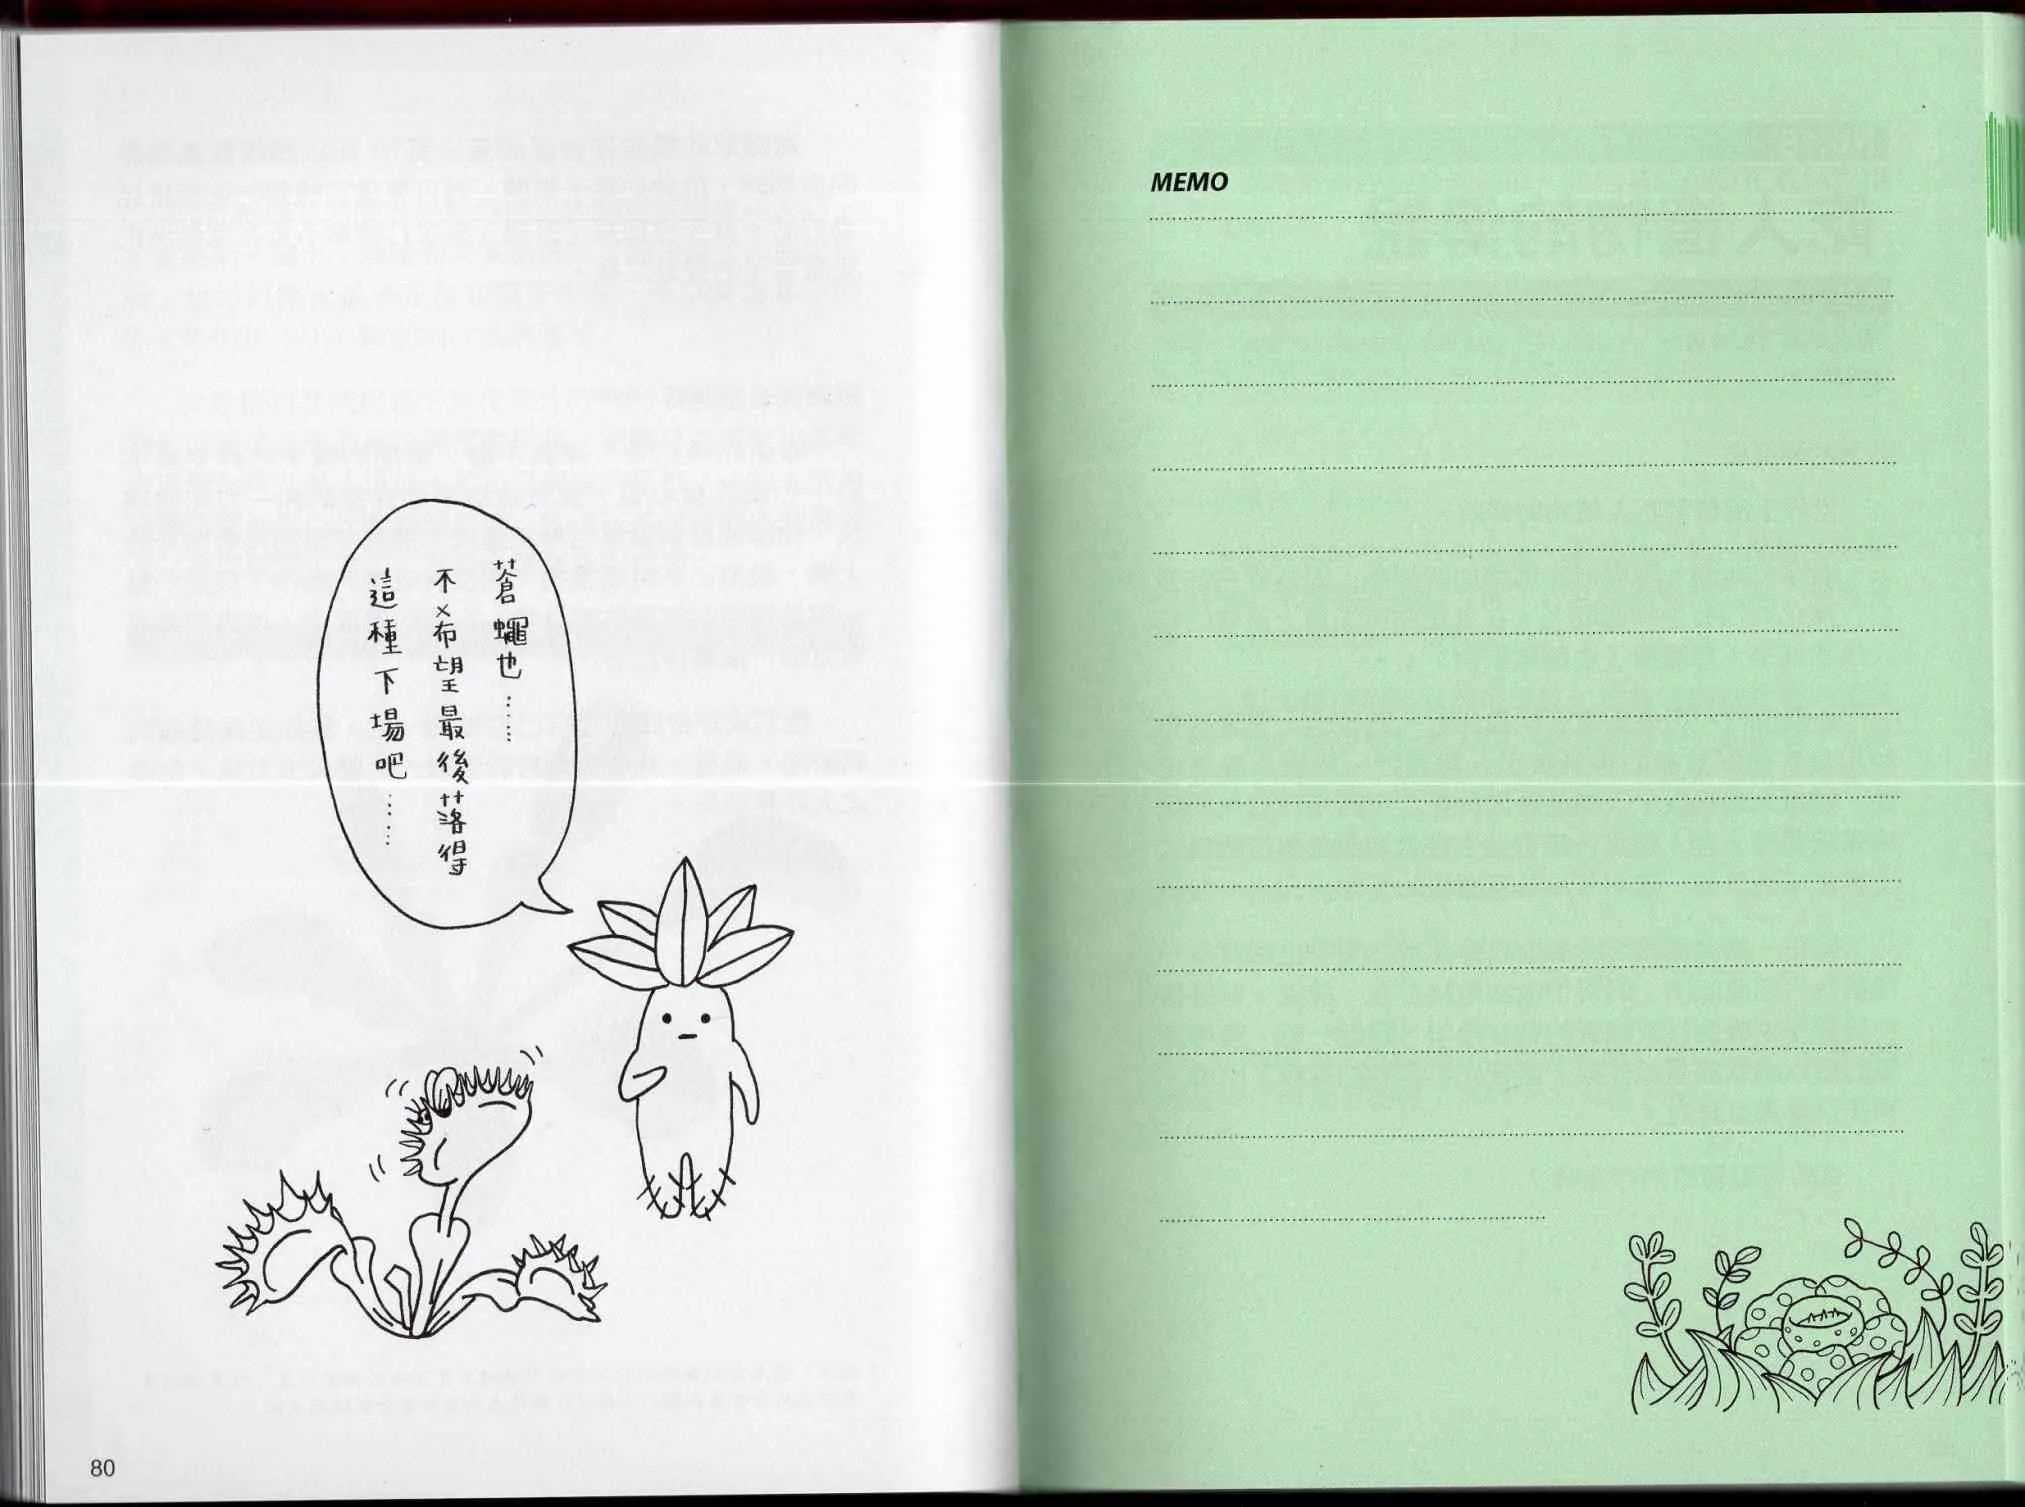 蒼蠅也……
不希望最後落得
這種下場吧……
80
MEMO